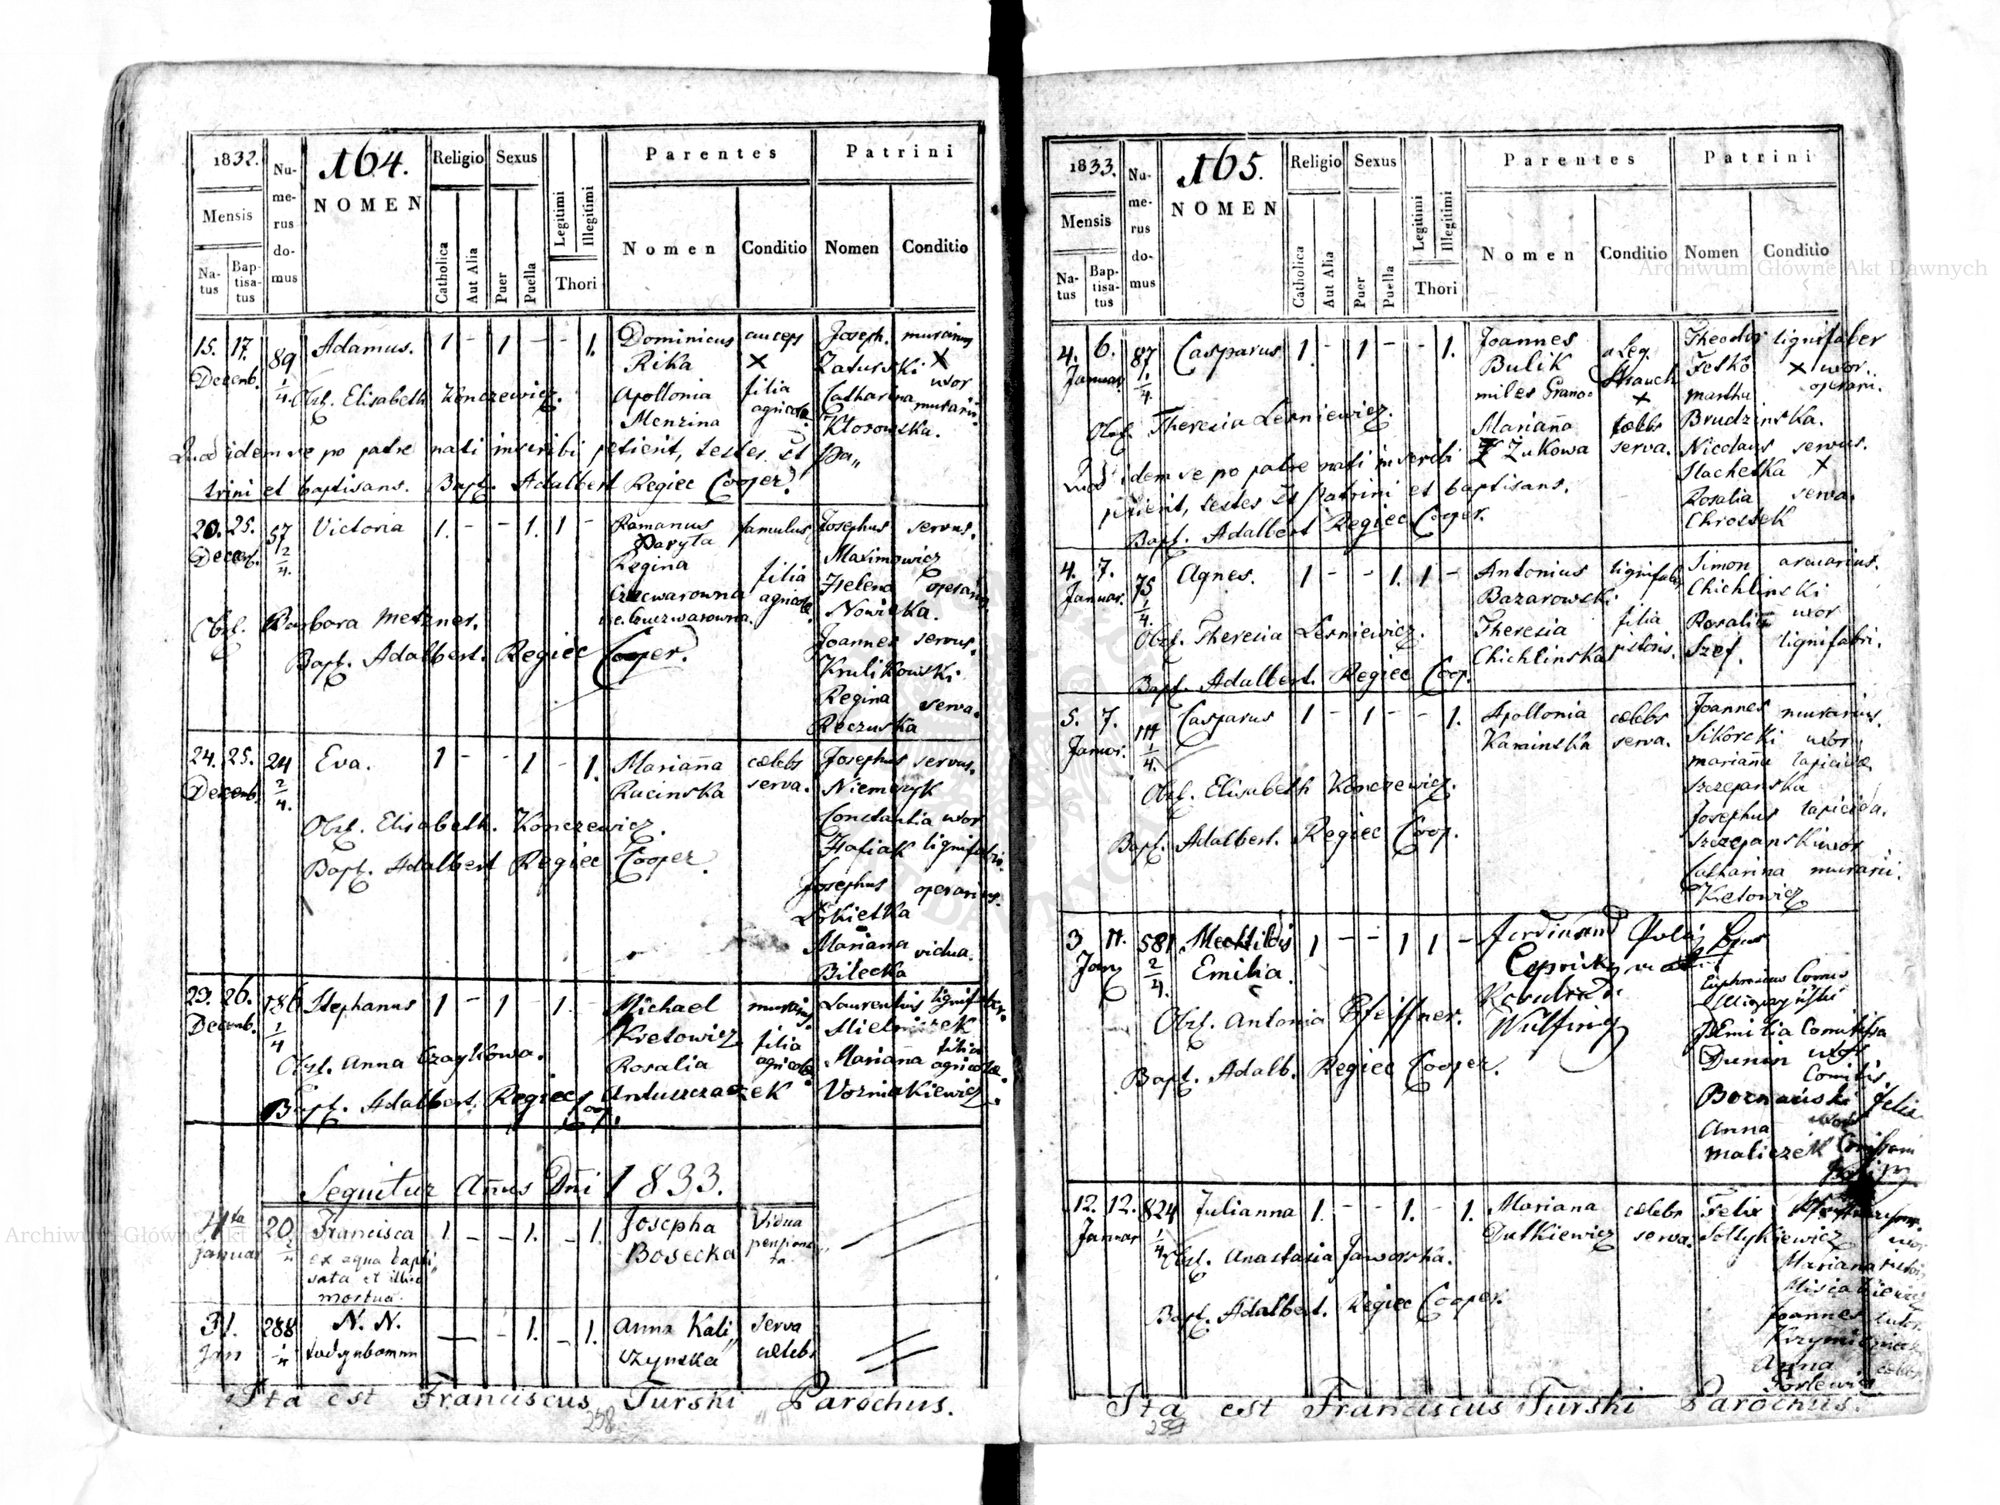 1832.
164.
Religio Sexus
Parentes Patrini
Numerus domus
Mensis
NOMEN
Legitimi
Illegitimi
Nomen Conditio Nomen Conditio
Natus Baptisatus
Catholica
Aut Alia
Puer
Puella
Thori
15. 17. 89 Adamus. 1 - 1 - - 1. Dominicus auceps Joseph. murarius
Decemb. 1/4 Rika X Zaturski X
Obst. Elisabeth Konczewicz. Apollonia filia Catharina uxor
Menzina agricolae Klosowska. murarii
Quod idem se po patre nati inscribi petierit, testes st Pa„
trini et baptisans. Bapt. Adalbert Regiec Cooper.
20. 25. 57 Victoria 1. - - 1. 1 - Romanus famulus Josephus servus.
Decem. 2/4. Paryla Maximowicz
Regina filia Helena operarii
agricolae Nowicka.
Obst. Barbara Metzner. Joannes servus.
Bapt. Adalbert. Regiec Cooper. Krulikowski
Regina serva.
Reczuska
24. 25. 24 Eva. 1 - - 1 - 1. Marianna caelebs Josephus servus.
Decemb. 2/4. Rucinska serva. Niemczyk
Obst. Elisabeth. Konczewicz. Constantia uxor
Bapt. Adalbert Regiec Cooper. lignifabri.
Josephus operarius.
Mariana vidua.
Bilecka
23. 26. 186 Stephanus 1 - 1 - 1. - Michael murarius Laurentius lignifaber.
Decemb. 1/4 Kretowicz filia Mielniczek
Obst. Anna Czaykowa. Rosalia agricolae Marianna filia agricolae.
Bapt. Adalbert. Regiec Coop. Anduszczaczek Vozniakiewicz.
Sequitur Annus Dni 1833.
4ta 20 Francisca 1. - - 1. - 1. Josepha Vidua
Januar ex aqua bapti„ Bosecka pensiona„
sata et illico ta.
mortua.
31. 288 N. N. - - 1. - 1. Anna Kali„ serva
Jan czynska caelebs
Ita est Franciscus Turski Parochus.
258
1833.
165.
Religio Sexus
Parentes Patrini
Numerus domus
Mensis
NOMEN
Legitimi
Illegitimi
Nomen Conditio Nomen Conditio
Natus Baptisatus
Catholica
Aut Alia
Puer
Puella
Thori
4. 6. 87 Casparus 1 - 1 - - 1. Joannes a Leg. Theodor lignifaber
Januar 1/4 Bulik Strauch Fetko X uxor.
miles Grano= X Martha operarii.
Obst. Theresia Lesniewicz. Marianna caelebs Brudzinska.
Zukowa serva. Nicolaus servus.
Quod idem se po patre nati inscribi Stachetka X
petierit, testes st Patrini et baptisans. Rosalia serva.
Bapt. Adalbert Regiec Cooper. Chrostek
4. 7. 75 Agnes. 1 - - 1. 1 - Antonius lignifaber Simon arcularius.
Januar. 1/4. Bazarowski. Chichlinski
Obst. Theresia Lesniewicz. Theresia filia Rosalia uxor
Chichlinska pistoris. Szef. lignifabri.
Bapt. Adalbert. Regiec Coop.
5. 7. 111 Casparus 1 - 1 - - 1. Apollonia caelebs Joannes murarius.
Januar. 1/4. Kaminska serva. Sikorski uxor
Obst. Elisabeth Konczewicz. Mariana lapicidae
Szczepanska
Bapt. Adalbert. Regiec Coop. Josephus lapicida.
Szczepanski uxor
Catharina murarii.
Kretowicz
3 11. 581 Mechtildis 1 - - 1 1 - Ferdinand
2/4. Emilia.
Obst. Antonia Pfeiffner. Wülfing
Bapt. Adalb. Regiec Cooper. Emilia Comitissa
Dunin uxor
Comitis.
Anna
Maliczek
12. 12. 824 Julianna 1. - - 1. - 1. Mariana caelebs Felix
Januar 1/4 Dutkiewicz serva. Soltykiewicz uxor
Obst. Anastasia Jaworska. Mariana
Bapt. Adalbert. Regiec Cooper. Joannes
Anna caelebs
Ita est Franciscus Turski Parochus.
259
Archiwum Główne Akt Dawnych
Archiwum Główne Akt Dawnych